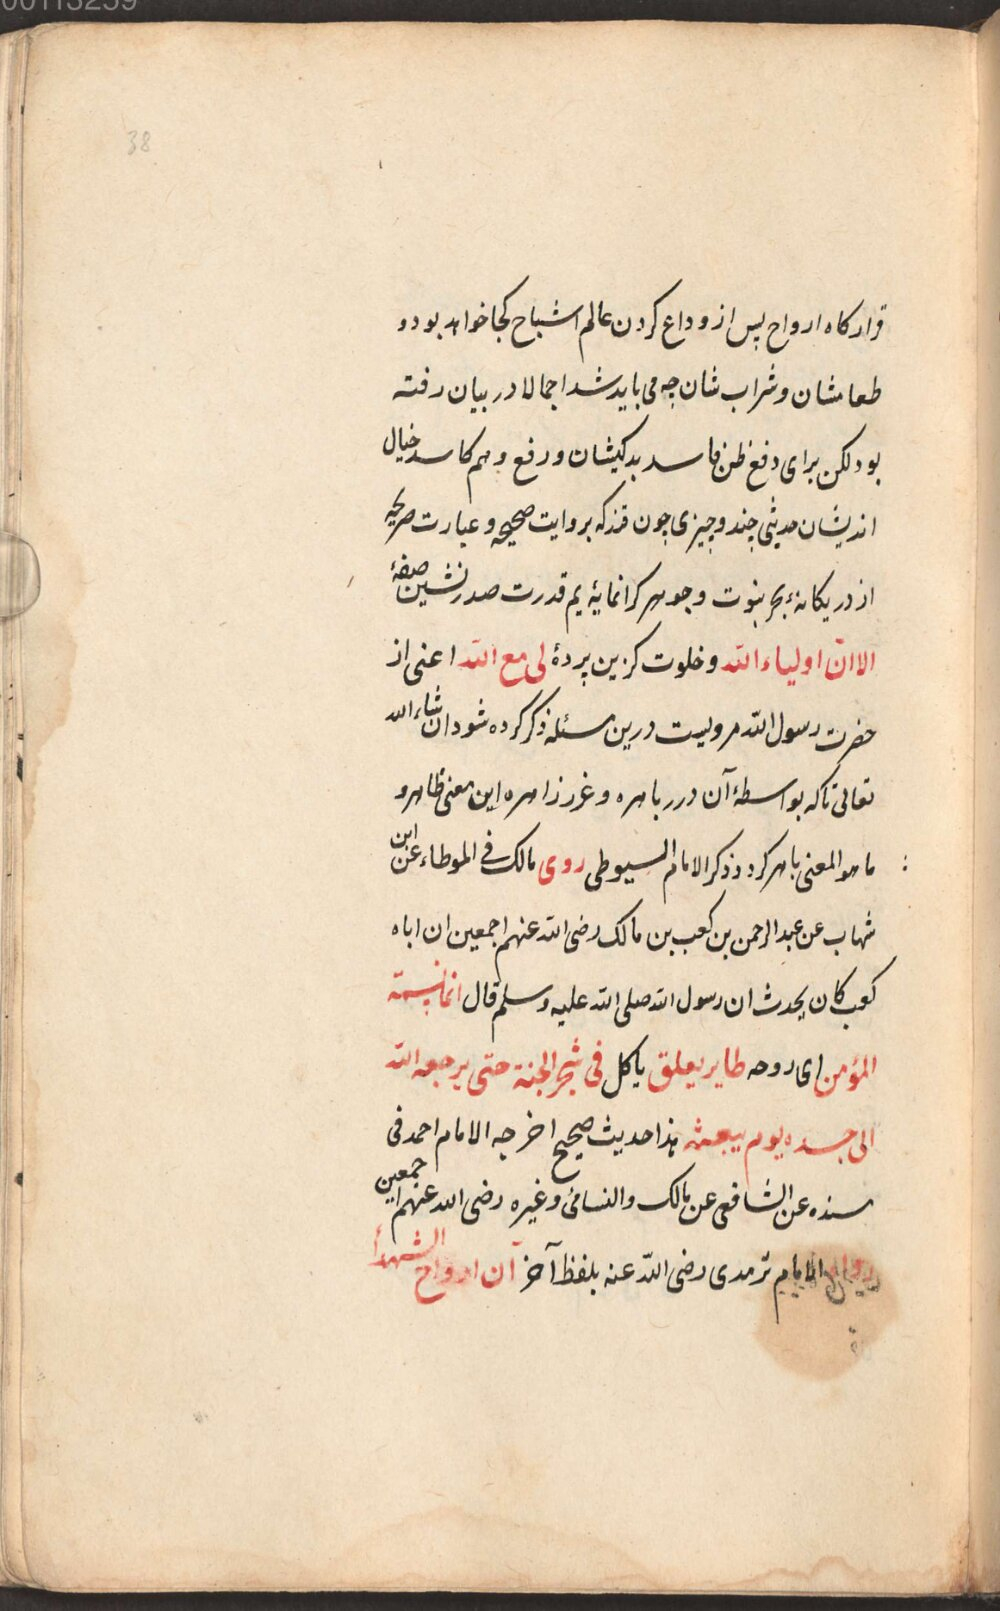 00113259
38
قرارکاه ارواح پس از وداع کردن عالم اشباح کجا خواهد بود و
طعامشان و شراب شان چه می باید شد اجمالا در بیان رفته
بود لکن برای دفع ظن فاسد بدکیشان و رفع وهم کاسد خیال
اندیشان حدیثی چند و چیزی چون قند که بروایت صحیحه و عبارت صریحه
از در یکانهٔ بحر نبوت و جوهر کرانمایهٔ یم قدرت صدر نشین صفهٔ
الا انّ اولیاء اللّه و خلوت کزین پردهٔ لی مع اللّه اعنی از
حضرت رسول اللّه مرویست درین مسئله ذکر کرده شود ان شاء اللّه
تعالی تا که بواسطهٔ آن درر باهره و غرر زاهره این معنی ظاهر و
ما هو المعنی باهر کردد ذکر الامام السیوطی روی مالک فے الموطاء عن ابن
شهاب عن عبد الرحمن بن کعب بن مالک رضی اللّه عنهم اجمعین ان اباه
کعب کان یحدث ان رسول اللّه صلی اللّه علیه وسلم قال انما نسمة
المؤمن ای روحه طایر یعلق یاکل فی شجر الجنة حتی یرجعه اللّه
الی جسده یوم یبعثه هذا حدیث صحیح اخرجه الامام احمد فی
سنده عن الشافعی عن مالک والنسائی وغیره رضی اللّه عنهم اجمعین
الامام ترمدی رضی اللّه عنه بلفظ آخر ان ارواح الشهدأ